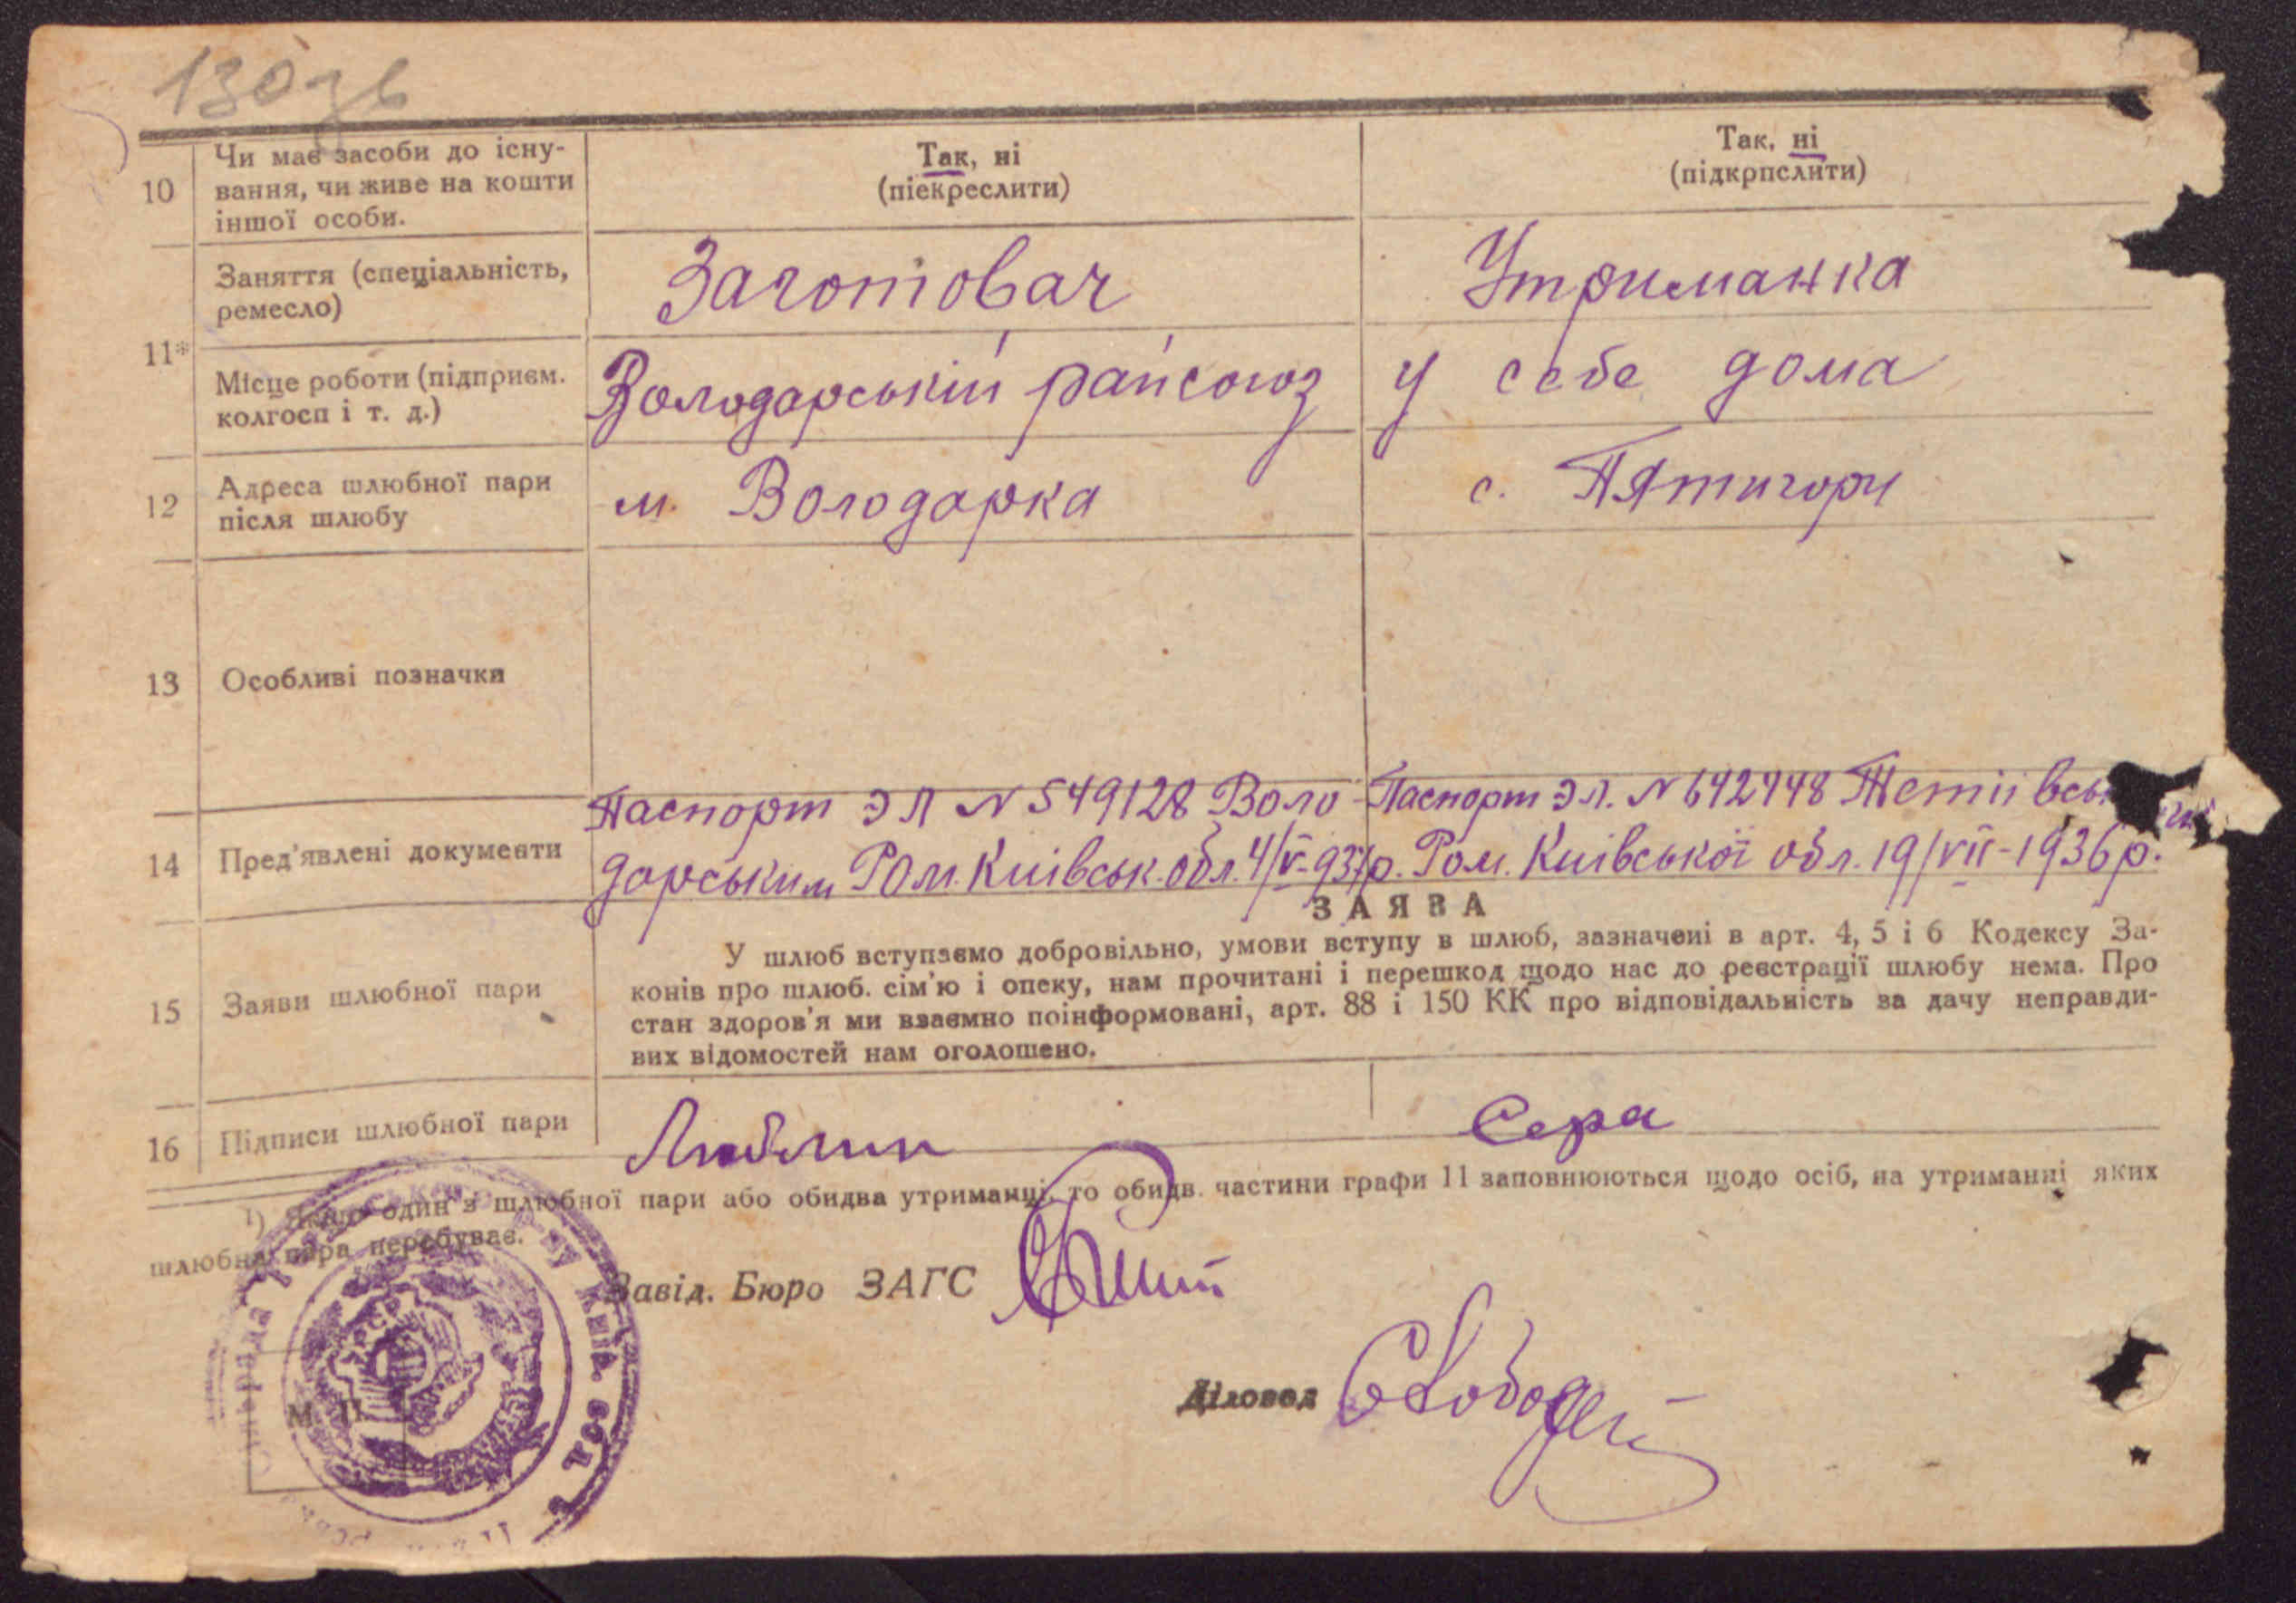 130зв
10 Чи має засоби до існу-
вання, чи живе на кошти
іншої особи.
Так, ні
(піекреслити)
Так, ні
(підкрпслити)
11*
Заняття (спеціальність,
ремесло)
Заготовач
Утриманка
Місце роботи (підприєм.
колгосп і т. д.)
Володарський райсоюз
у себе дома
12 Адреса шлюбної пари
після шлюбу
м. Володарка
с. Пятигори
13 Особливі позначки
14 Пред'явлені документи
Паспорт ЭЛ N 549128 Воло-
дарським РОМ. Київськ. обл. 4/V-937р.
Паспорт ЭЛ. N 642448 Тетіївськ
Ром. Київської обл. 19/VII-1936р.
15 Заяви шлюбної пари
ЗАЯВА
У шлюб вступаємо добровільно, умови вступу в шлюб, зазначені в арт. 4, 5 і 6 Кодексу За-
конів про шлюб. сім'ю і опеку, нам прочитані і перешкод щодо нас до реєстрації шлюбу нема. Про
стан здоров'я ми взаємно поінформовані, арт. 88 і 150 КК про відповідальність за дачу неправди-
вих відомостей нам оголошено.
16 Підписи шлюбної пари
Сера
¹) Якщо один з шлюбної пари або обидва утриманці, то обидв. частини графи 11 заповнюються щодо осіб, на утриманні яких
шлюбна пара перебуває.
Завід. Бюро ЗАГС
Діловод
М. П.
Київ. обл.